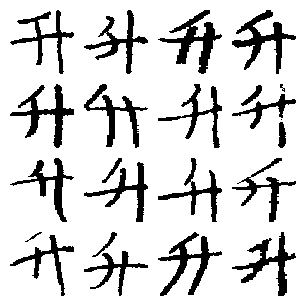 升升升升
升升升升
升升升升
升升升升